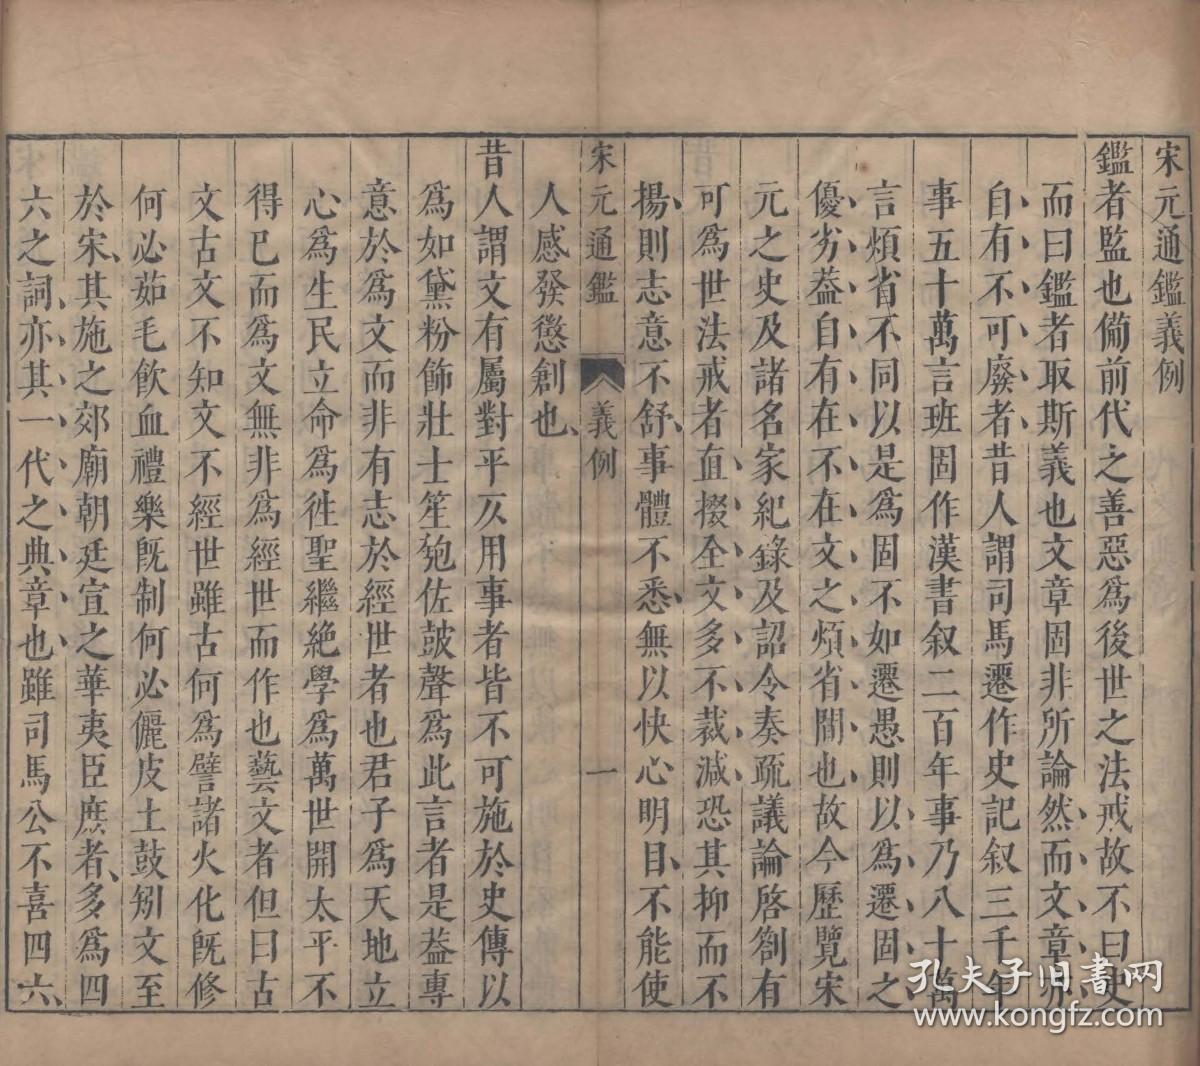 宋元通鑑義例
鑑者監也備前代之善惡爲後世之法戒故不曰史
而曰鑑者取斯義也文章固非所論然而文章亦
自有不可廢者昔人謂司馬遷作史記叙三千年
事五十萬言班固作漢書叙二百年事乃八十萬
言煩省不同以是爲固不如遷愚則以爲遷固之
優劣葢自有在不在文之煩省間也故今歷覽宋
元之史及諸名家紀錄及詔令奏疏議論啓劄有
可爲世法戒者直掇全文多不裁減恐其抑而不
揚則志意不舒事體不悉無以快心明目不能使
人感發懲創也
宋元通鑑 義例 一
昔人謂文有屬對平仄用事者皆不可施於史傳以
爲如黛粉飾壯士笙匏佐鼓聲爲此言者是葢專
意於爲文而非有志於經世者也君子爲天地立
心爲生民立命爲徃聖繼絶學爲萬世開太平不
得已而爲文無非爲經世而作也藝文者但曰古
文古文不知文不經世雖古何爲譬諸火化旣修
何必茹毛飲血禮樂旣制何必儷皮土鼓矧文至
於宋其施之郊廟朝廷宣之華夷臣庶者多爲四
六之詞亦其一代之典章也雖司馬公不喜四六
孔夫子旧书网
www.kongfz.com